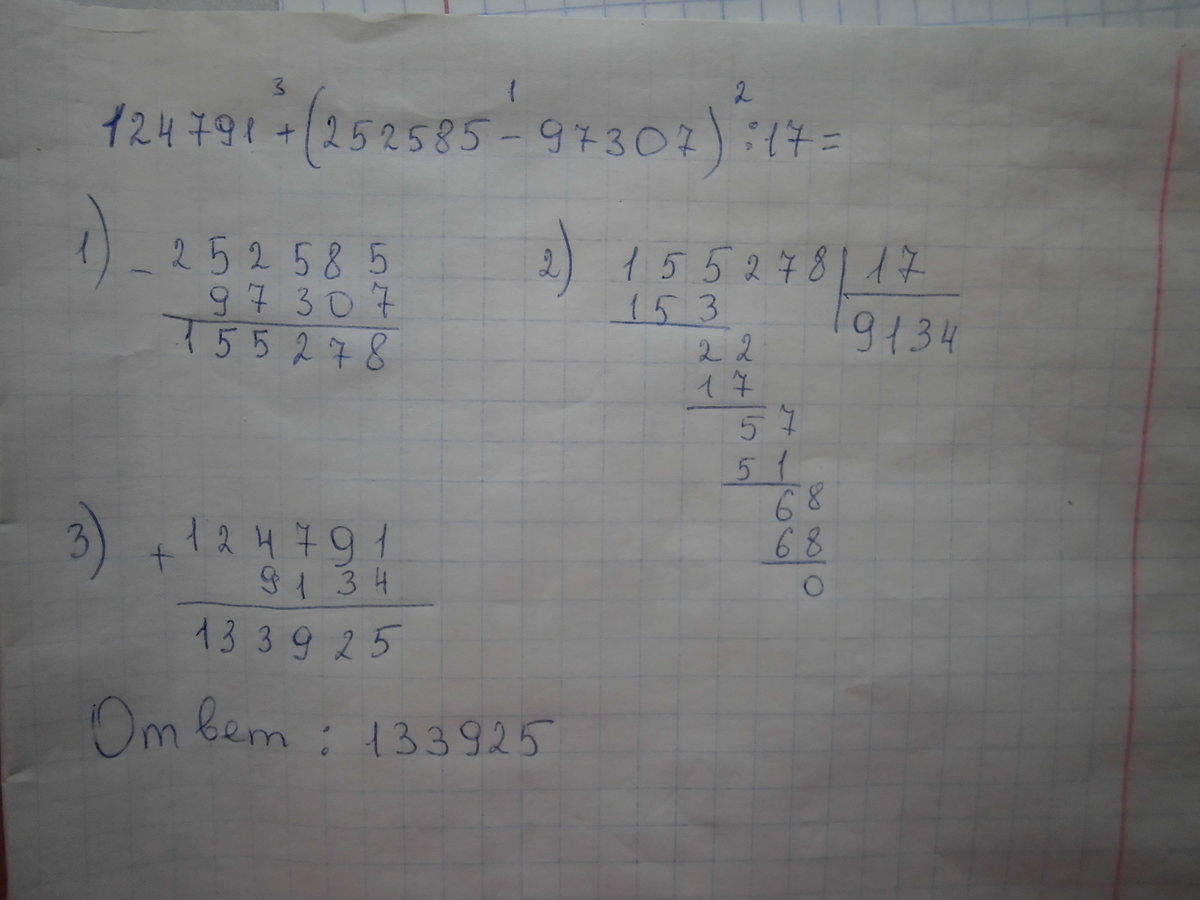 3 1 2
124791+(252585-97307):17=
1) - 252585
97307
155278
2) 155278 | 17
153
9134
22
17
57
51
68
68
0
3) + 124791
9134
133925
Ответ: 133925